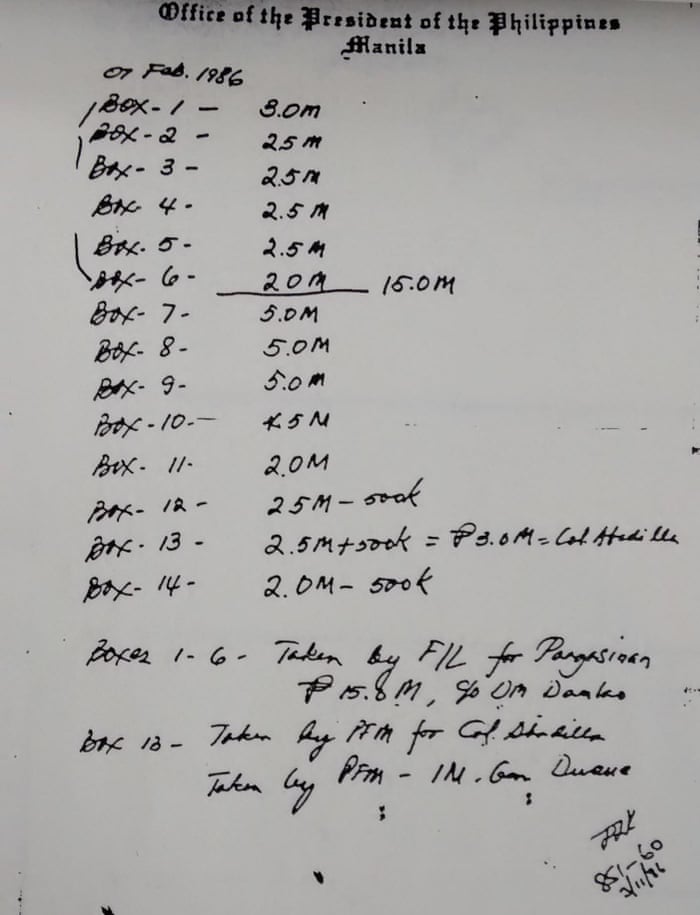 Office of the President of the Philippines
Manila
07 Feb. 1986
Box-1 - 3.0M
Box-2 - 2.5M
Box-3 - 2.5M
Box 4- 2.5M
Box-5- 2.5M
Box-6- 2.0M 15.0M
Box-7- 5.0M
Box-8- 5.0M
Box-9- 5.0M
Box-10.- 5M
Box-11- 2.0M
Box-12- 2.5M-500K
Box-13- 2.5M+500K = ₱3.0M = Col. Abadilla
Box-14- 2.0M-500K
Boxes 1-6- Taken by F/L for Pangasinan
₱15.8M, c/o DM
Box 13- Taken by PFM for Col. Abadilla
Taken by PFM - 1M. Gen
851-60
2/11/86